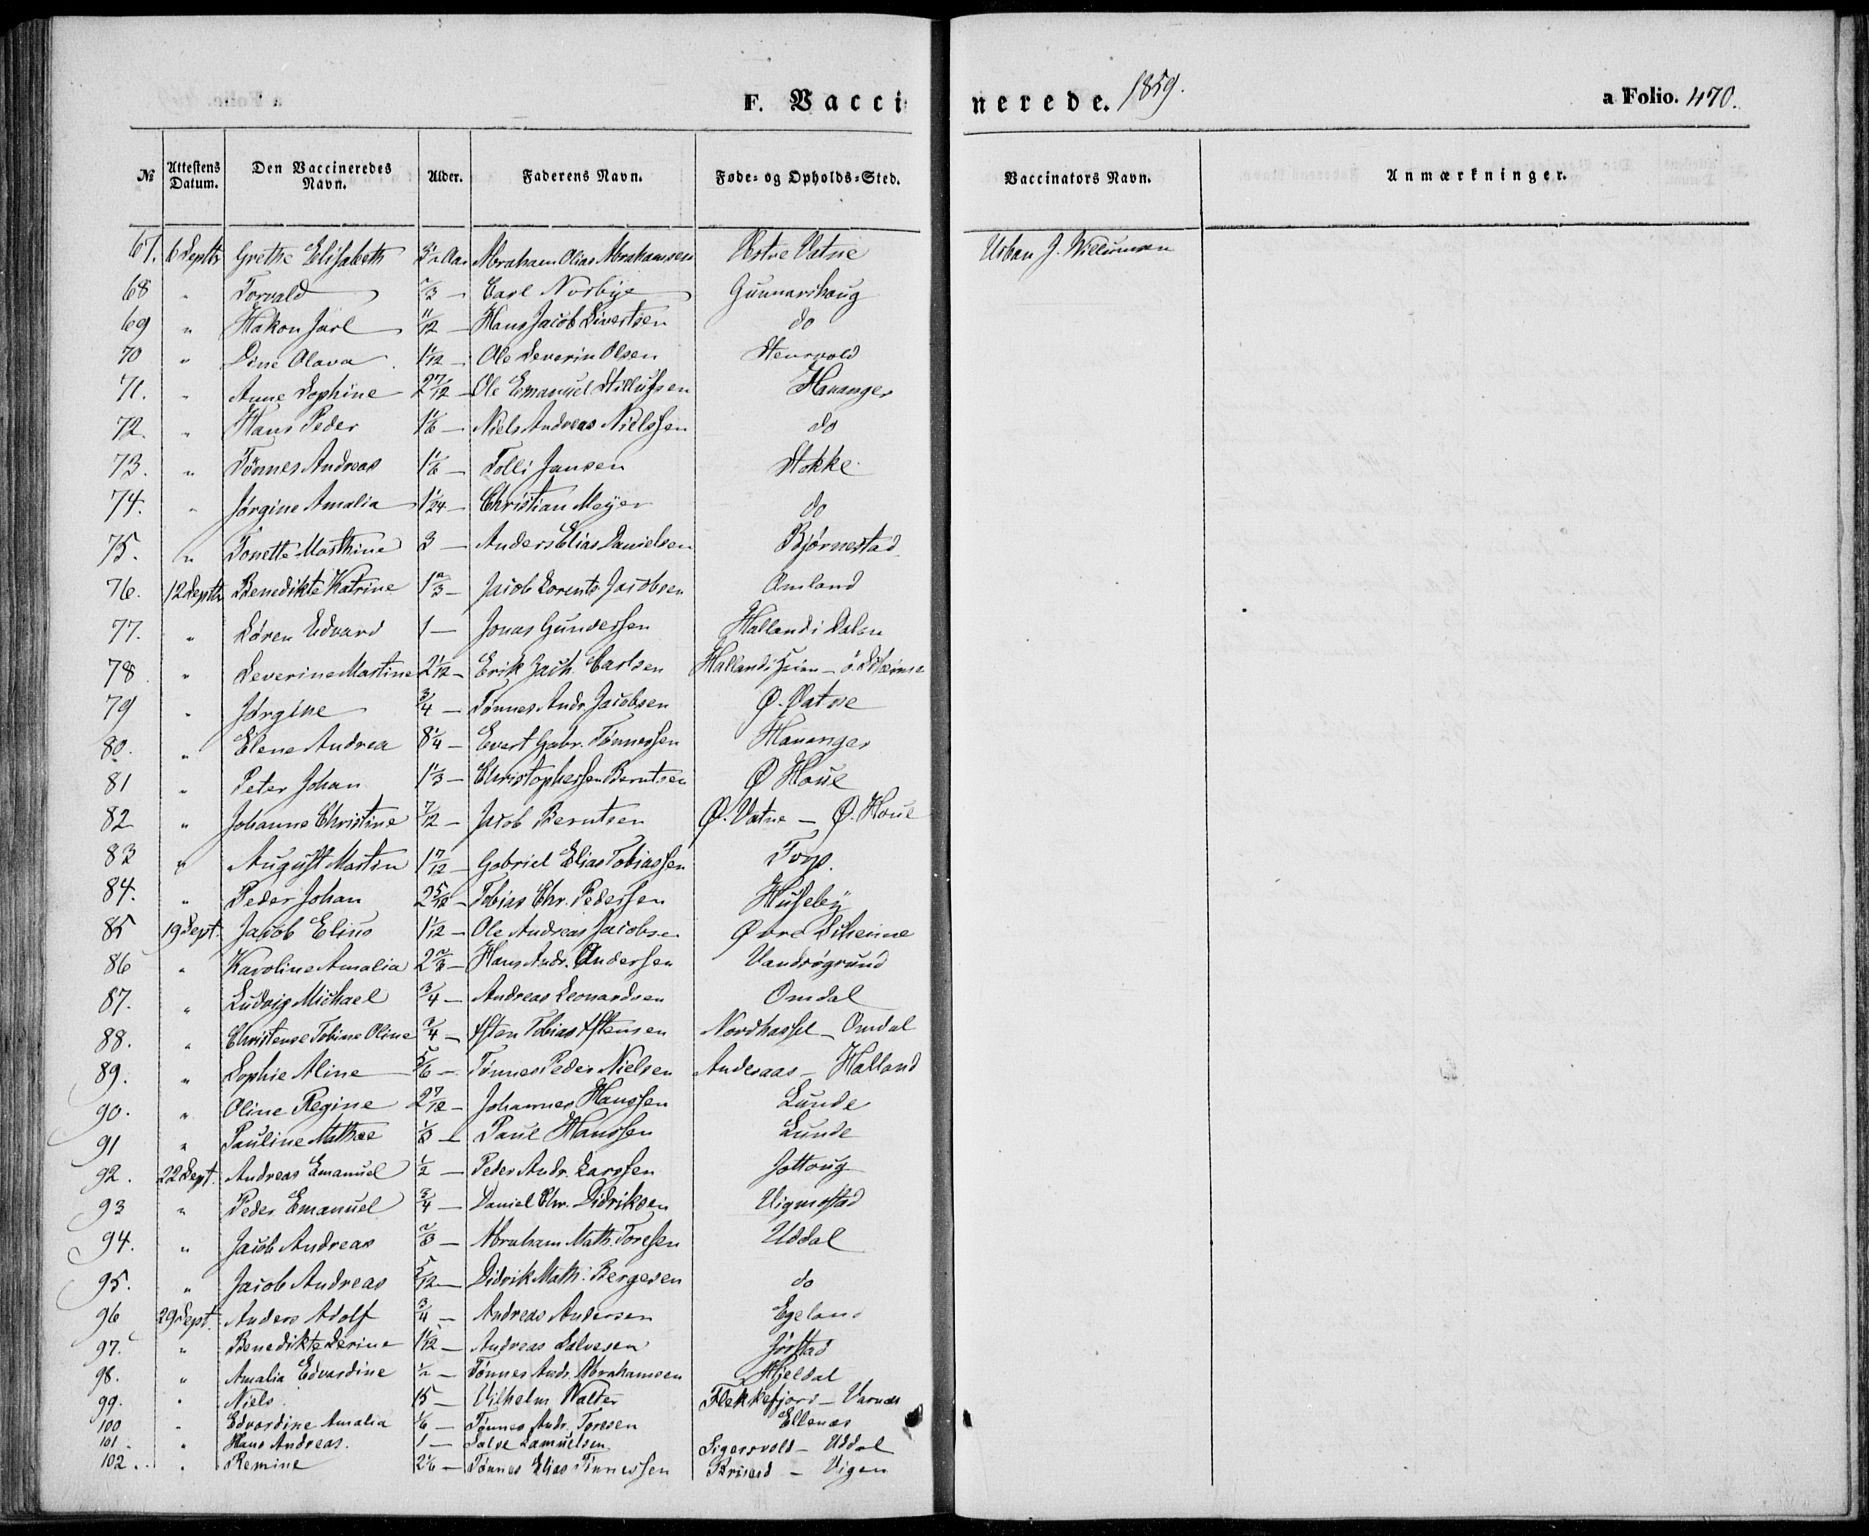 F. Vaccinerede. 1859.
a Folio. 470.
№ Attestens Datum. Den Vaccineredes Navn. Alder. Faderens Navn. Føde- og Opholds-Sted. Vaccinators Navn. Anmærkninger.
67. 6 Septbr Grethe Elisabeth Aar Abraham Olias Abrahamsen Østre Vatne Urban J. Willumsen
68 " Torvald 2/3 — Carl Norbye Gunnarshaug
69 " Hakon Jarl 11/12 — Hans Jacob Sivertsen do
70 " Sine Olava 1 1/12 — Ole Severin Olsen Steursvold
71. " Anne Sophine 2 7/12 — Ole Emanuel Hauanger
72. " Hans Peder 1 1/6 — Niels Andreas Nielssen do
73. " Tønnes Andreas 1 1/6 — Tolli Jansen Stokke
74. " Jørgine Amalia 1 1/24 — Christian Meyer do
75. " Tonette Marthine 3 — Anders Elias Danielsen Bjørnestad
76. 12 Septbr Benedikte Katrine 1 2/3 — Jacob Lorents Jacobsen Omland
77. " Søren Edvard 1 — Jonas Gunderssen Halland i Dalen
78 " Severine Martine 2 1/12 — Erik Zach. Carlsen Halland i
79 " Jørgine 3/4 — Tønnes Andr. Jacobsen Ø. Vatne
80. " Elene Andrea 8 1/4 — Evert Gabr. Tønnessen Hauanger
81 " Peter Johan 1 1/3 — Christophersen Berntsen Ø Houe
82 " Johanne Christine 7/12 — Jacob Berntsen Ø. Vatne — Ø. Houe
83 " August Martin 1 7/12 — Gabriel Elias Tobiassen Torp.
84. " Peder Johan 2 5/12 — Tobias Chr. Pederssen Husseby
85 19 Sept. Jacob Elius 1 1/12 — Ole Andreas Jacobsen Øvre
86 " Karoline Amalia 2 2/3 — Hans Andr. Anderssen Vandrøgrund
87. " Ludvig Michael 3/4 — Andreas Leonardsen Omdal
88. " Christense Tobine Oline 3/4 — Asten Tobias Astensen Nordhassel — Omdal
89. " Sophie Aline 5/6 — Tønnes Peder Nielsen Andesaas — Halland
90. " Oline Regine 2 7/12 — Johannes Hanssen Lunde
91 " Pauline Mathea 1/3 — Paul Hanssen Lunde
92. 22 Sept. Andreas Emanuel 1/2 — Peder Andr. Larssen Jottoug
93 " Peder Emanuel 3/4 — Daniel Chr. Didriksen Vigmostad
94. " Jacob Andreas 2/3 — Abraham Math. Toresen Uddal
95. " Jacob Andreas 5/12 — Didrik Math. Bergesen do
96 29 Sept. Anders Adolf 3/4 — Andreas Andersen Egeland
97. " Benedikte Serine 1 1/12 — Andreas Salvesen Jørstad
98. " Amalia Edvardine 1/2 — Tønnes Andr. Abrahamsen Hjeldal
99. " Niels 15 — Vilhelm Walter Flekkefjord — Varnæs
100 " Edvardine Amalia 1/6 — Tønnes Andr. Toresen Ellenæs
101. " Hans Andreas. 1 — Salve Samuelsen Sigersvold — Uddal
102. " Remine 2 1/6 — Tønnes Elias Tønnessen — Vigen